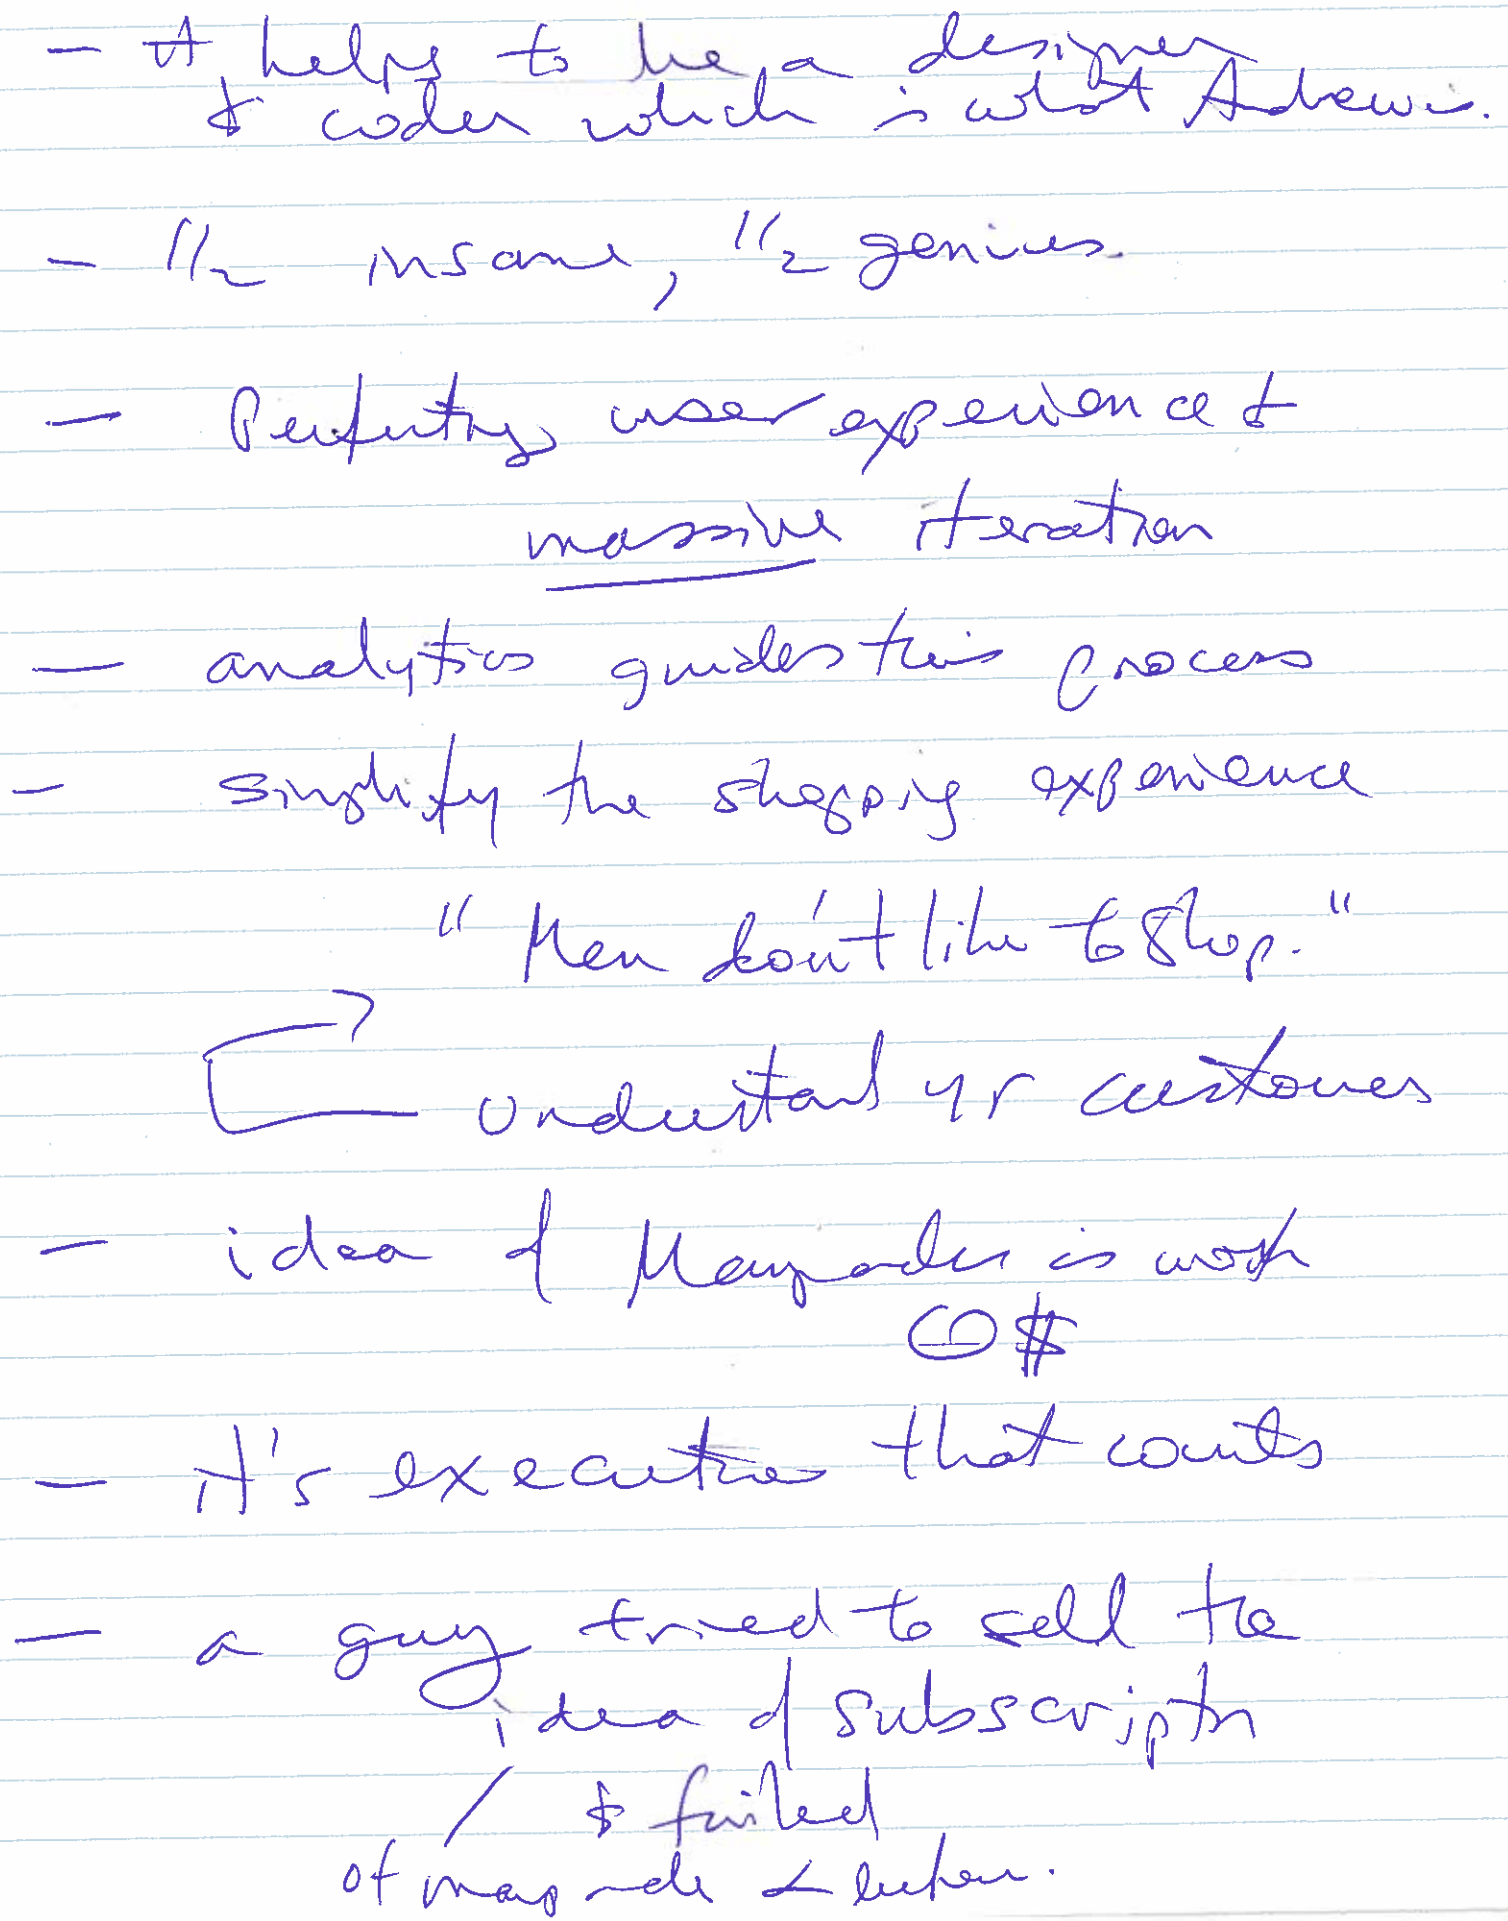 - It helps to be a designer
& coder which is what Andrew is.
- 1/2 insane, 1/2 genius.
- Perfecting user experience &
massive iteration
- analytics guides this process
- simplify the shopping experience
"Men don't like to shop."
understand yr customers
- idea of is worth
0$
- it's execution that counts
- a guy tried to sell the
idea of subscriptn
& failed
of